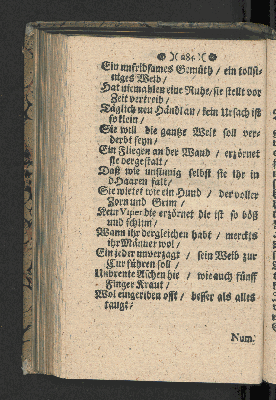 )( 284 )(
Ein unfridsames Gemüth / ein tollsi-
niges Weib /
Hat niemahlen eine Ruhe/ sie stellt vor
Zeit vertreib /
Täglich neu Händl an / kein Ursach ist
so klein /
Sie will die gantze Welt soll ver-
derbt seyn /
Ein Fliegen an der Wand / erzörnet
sie dergestalt /
Daß wie unsinnig selbst sie ihr in
d'Haaren falt /
Sie wietet wie ein Hund / der voller
Zorn und Grim /
Kein Viper die erzörnet die ist so böß
und schlim /
Wann ihr dergleichen habt / merckts
ihr Männer wol /
Ein jeder unverzagt / sein Weib zur
Cur führen soll /
Unbrente Aschen hie / wie auch fünff
Finger Kraut /
Wol eingeriben offt / besser als alles
taugt /
Num.